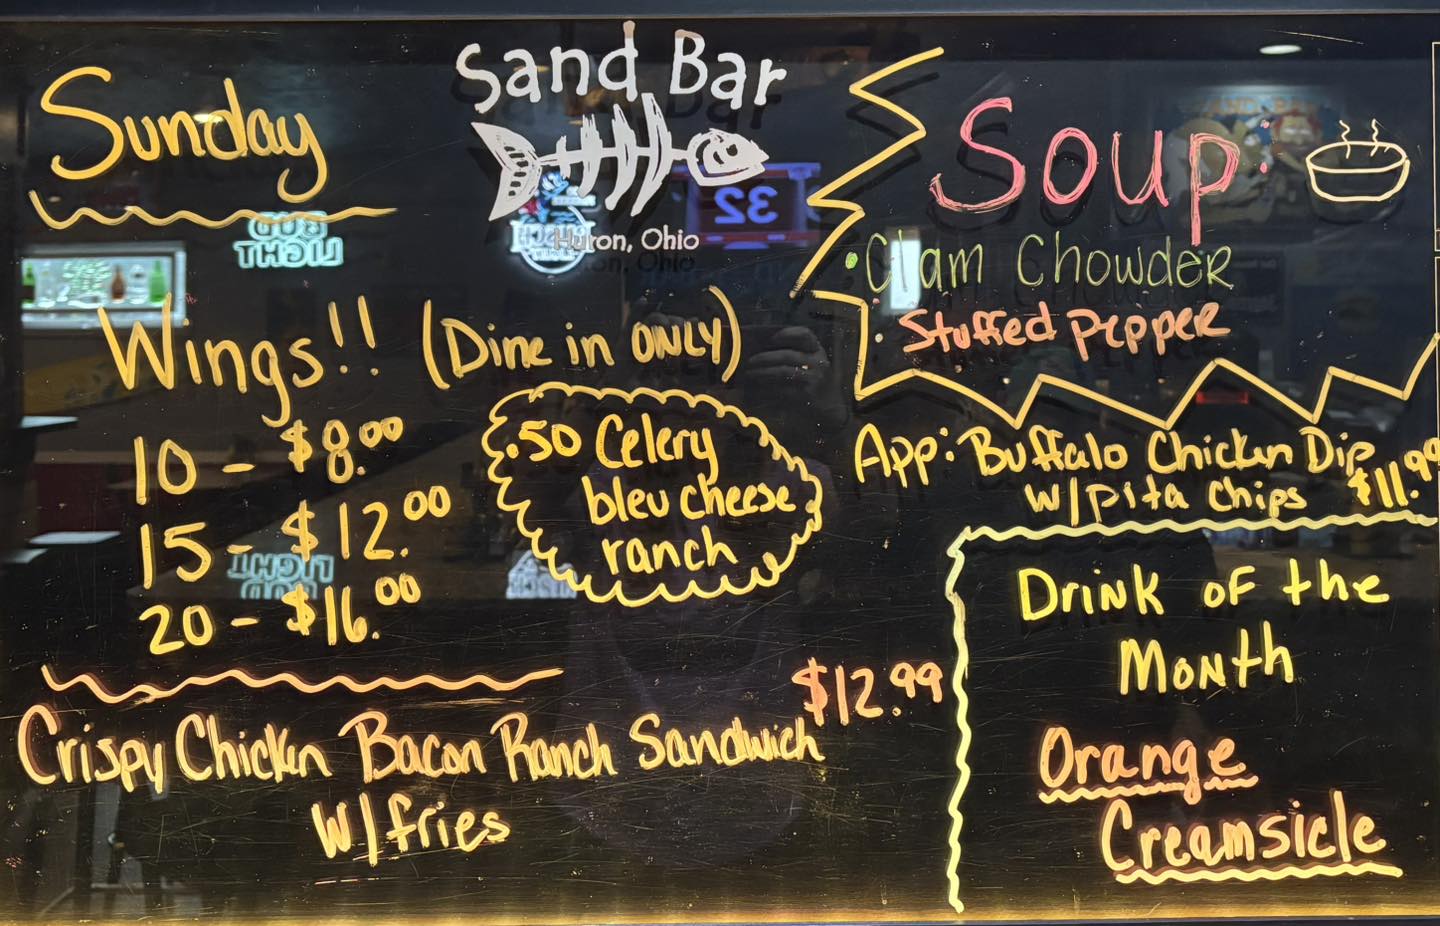 Sand Bar
Huron, Ohio
Sunday
Wings!! (Dine in ONLY)
10 - $8.00
15 - $12.00
20 - $16.00
.50 Celery
bleu cheese
ranch
Crispy Chicken Bacon Ranch Sandwich $12.99
w/fries
Soup:
• Clam Chowder
• Stuffed Pepper
App: Buffalo Chicken Dip
w/pita chips $11.99
Drink of the
Month
Orange
Creamsicle
BUD
LIGHT
32
LIGHT
BUD